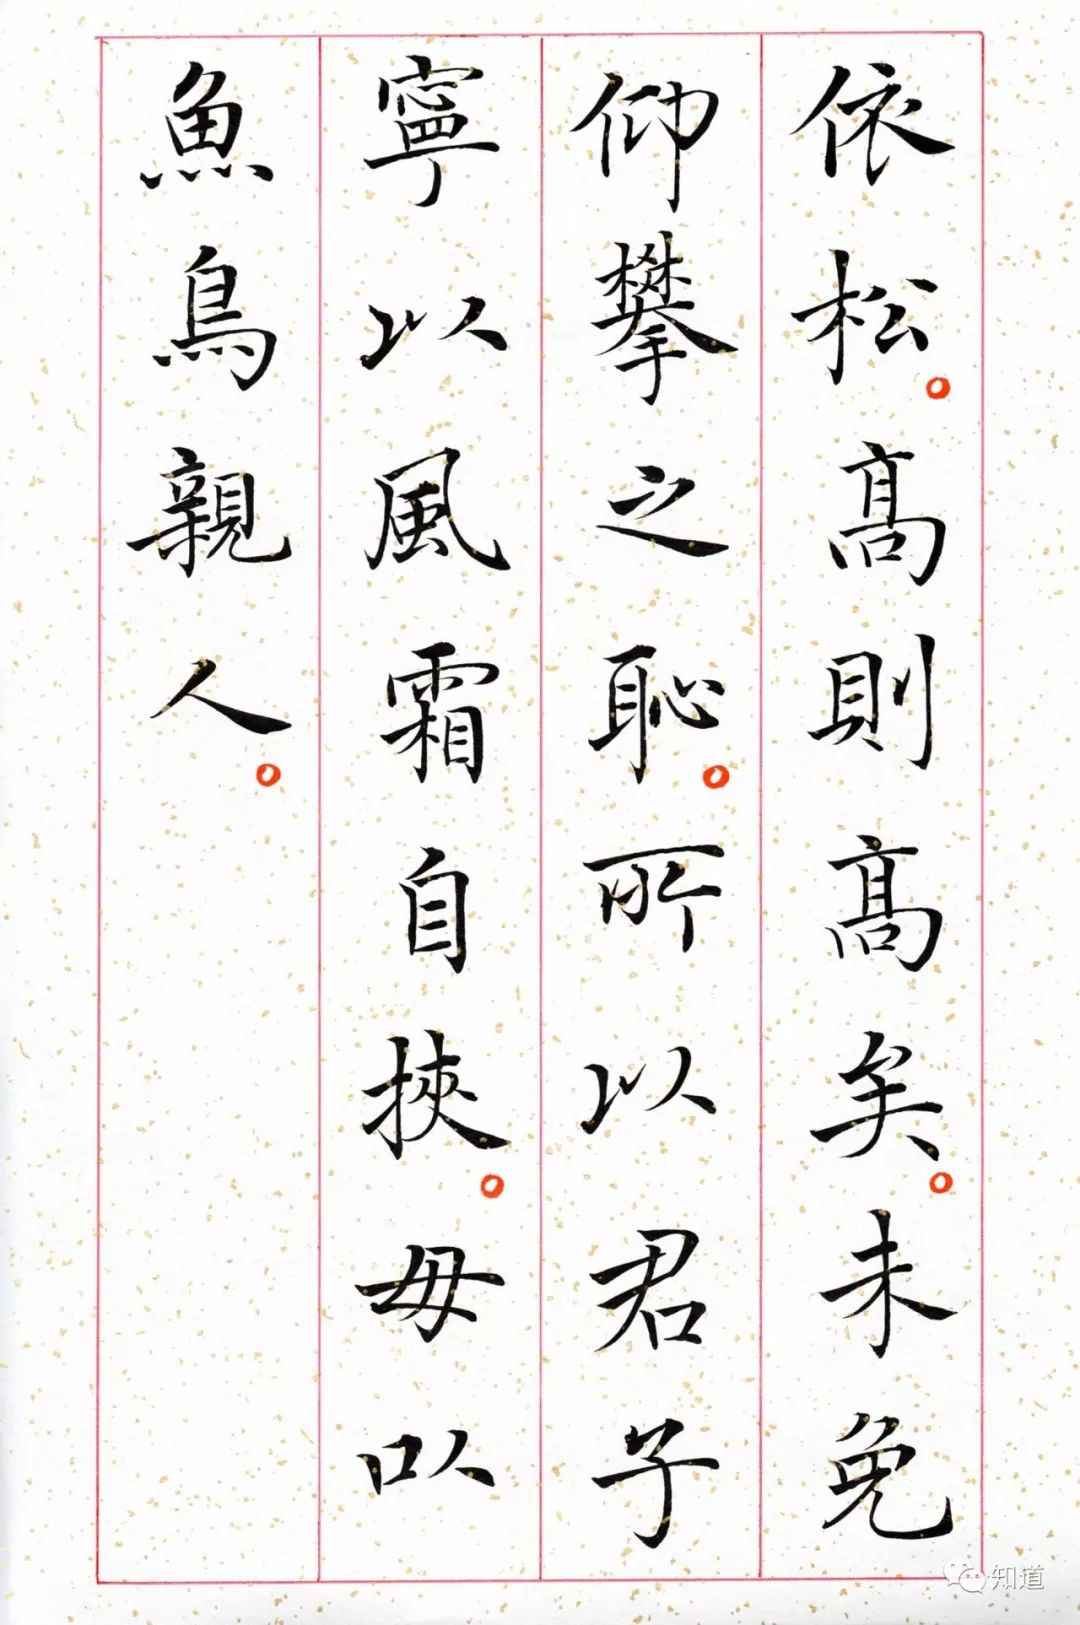 依松。高則高矣。未免
仰攀之恥。所以君子
寧以風霜自挾。毋以
魚鳥親人。
知道